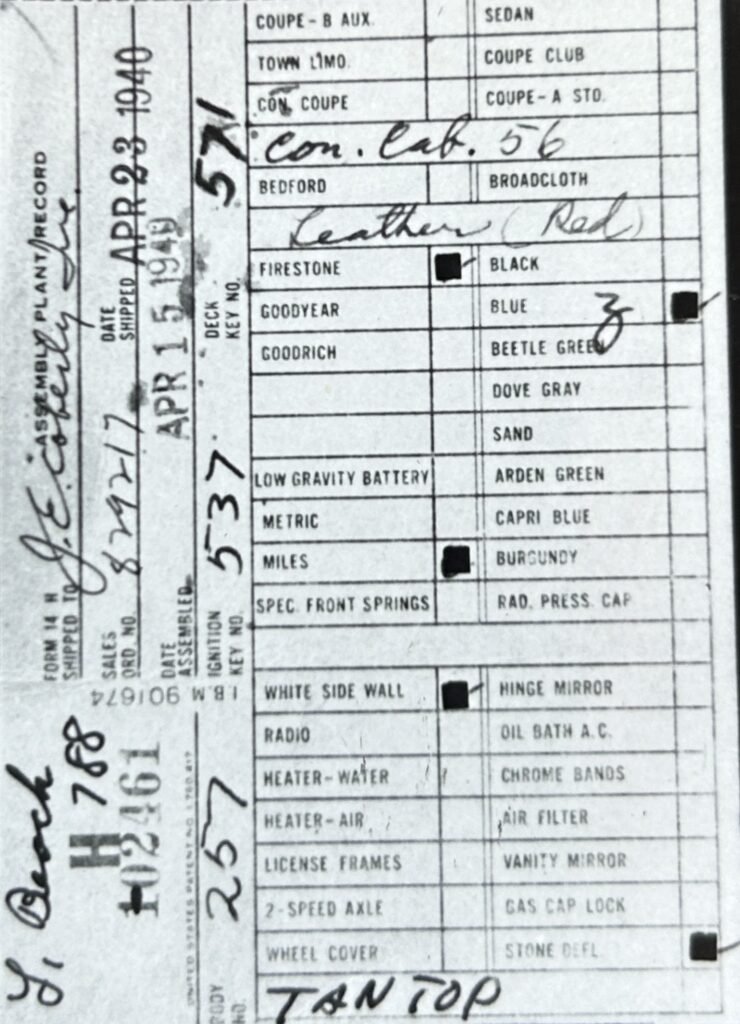 COUPE-B AUX. SEDAN
TOWN LIMO. COUPE CLUB
CON. COUPE COUPE-A STD.
Con. Cab. 56
BEDFORD BROADCLOTH
Leather (Red)
FIRESTONE BLACK
GOODYEAR BLUE 3
GOODRICH BEETLE GREEN
DOVE GRAY
SAND
LOW GRAVITY BATTERY ARDEN GREEN
METRIC CAPRI BLUE
MILES BURGUNDY
SPEC. FRONT SPRINGS RAD. PRESS. CAP
WHITE SIDE WALL HINGE MIRROR
RADIO OIL BATH A.C.
HEATER-WATER CHROME BANDS
HEATER-AIR AIR FILTER
LICENSE FRAMES VANITY MIRROR
2-SPEED AXLE GAS CAP LOCK
WHEEL COVER STONE DEFL.
TAN TOP
FORM 14 H ASSEMBLY PLANT RECORD
SHIPPED TO J.E. Coberly Inc.
SALES ORD. NO. 829217 DATE SHIPPED APR 23 1940
DATE ASSEMBLED APR 15 1940
IGNITION KEY NO. 537 DECK KEY NO. 571
I.B.M 901674
L. Beach
H 788
102461
UNITED STATES PATENT NO. 1,780,417
BODY NO. 257